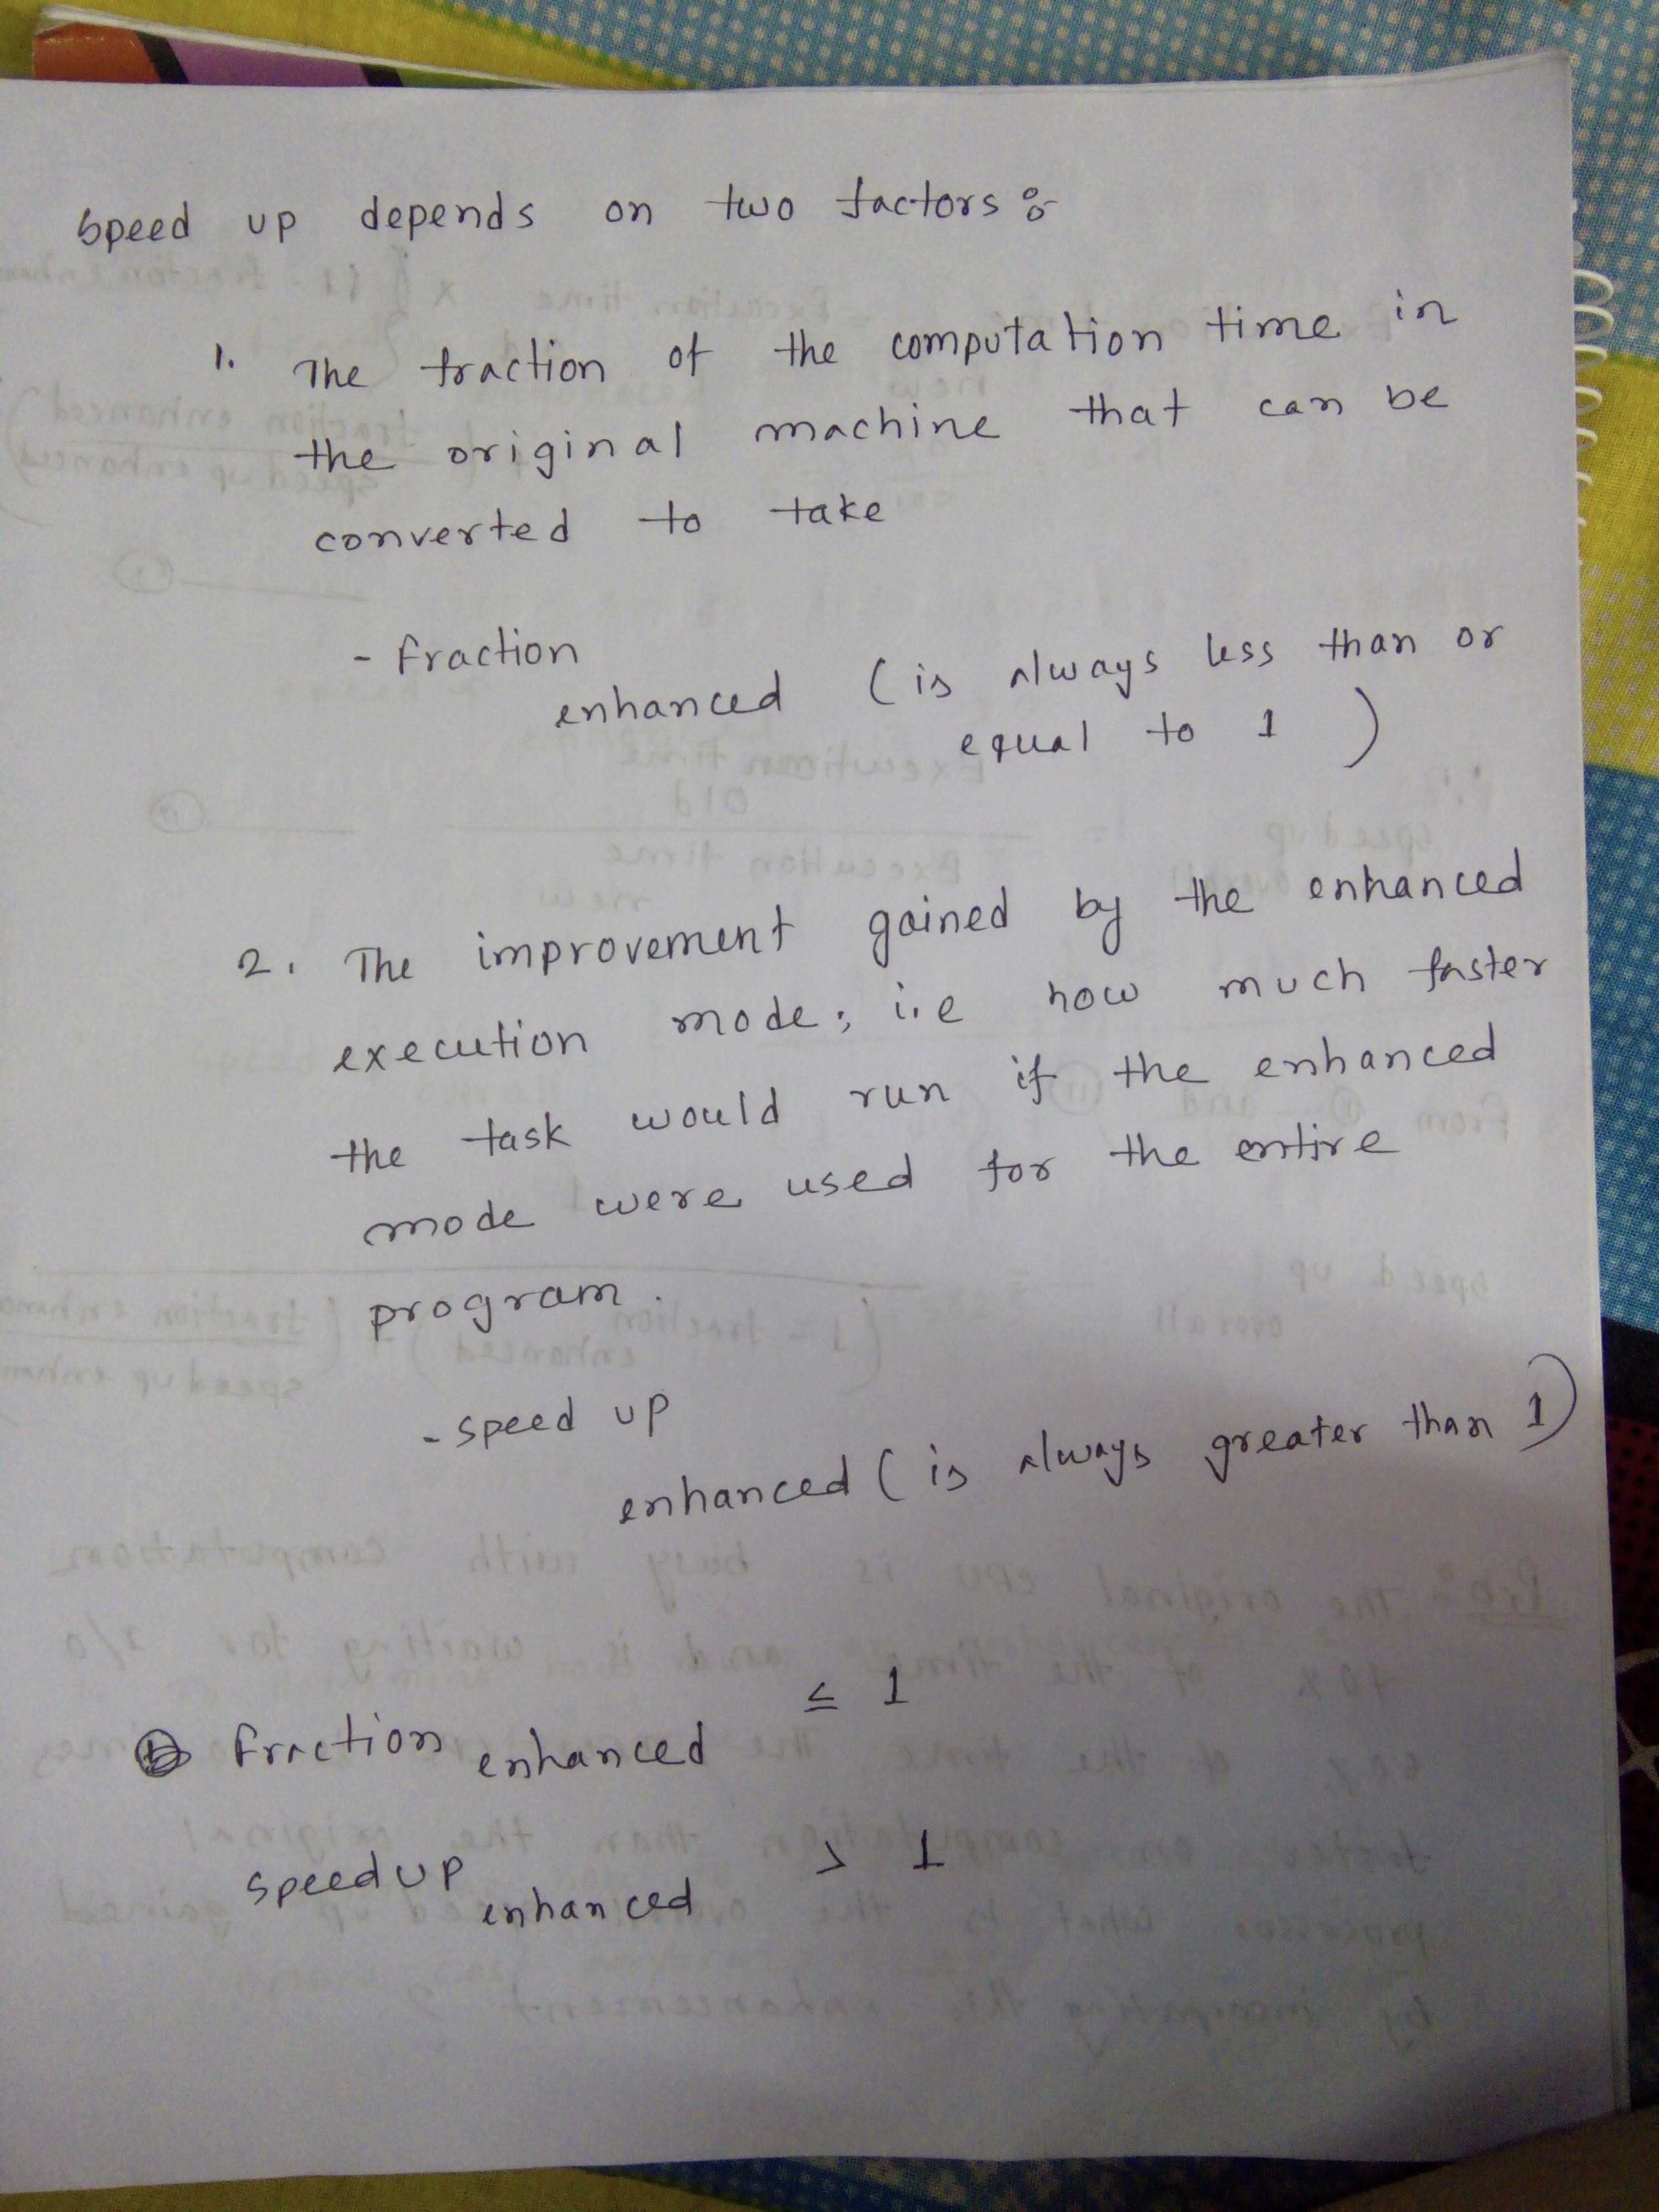 Speed up depends on two factors :-
1. The fraction of the computation time in
the original machine that can be
converted to take
- Fraction
enhanced ( is always less than or
equal to 1 )
2. The improvement gained by the enhanced
execution mode; i.e how much faster
the task would run if the enhanced
mode were used for the entire
program.
- speed up
enhanced ( is always greater than 1 )
Fraction enhanced ≤ 1
speed up enhanced > 1